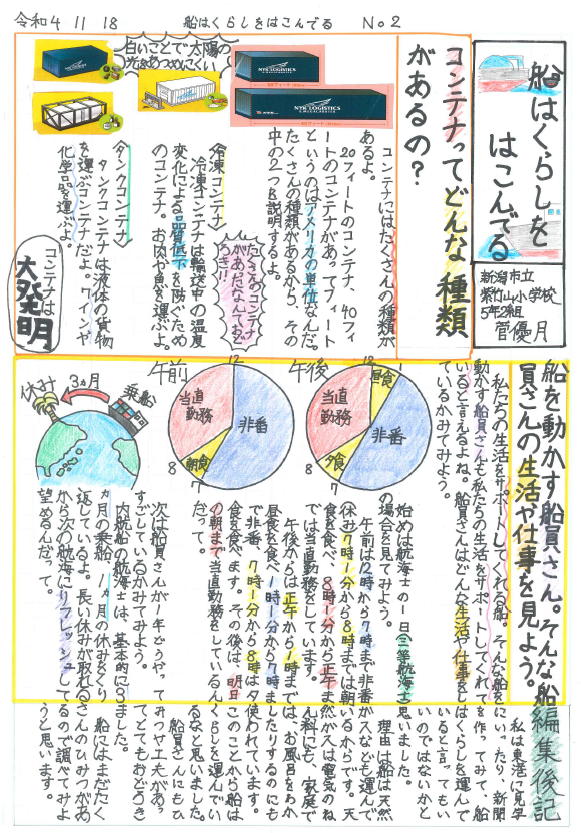 令和4 11 18 船はくらしをはこんでる No2
船はくらしを
はこんでる
新潟市立
紫竹山小学校
5年2組
菅優月
コンテナってどんな種類
があるの?
コンテナにはたくさんの種類が
あるよ。
20フィートのコンテナ、40フィ
ートのコンテナがあってフィート
というのはアメリカの単位なんだ。
たくさんの種類があるから、その
中の2つを説明するよ。
白いことで太陽の
光をあつめにくい
NYK LOGISTICS
NYK LOGISTICS
たくさんのコンテナ
があだなんておど
ろき!!
冷凍コンテナ
冷凍コンテナは輸送中の温度
変化による品質低下を防ぐため
のコンテナ。お肉や魚を運ぶよ。
タンクコンテナ
タンクコンテナは液体の貨物
を運ぶコンテナだよ。ワインや
化学品を運ぶよ。
コンテナは
大発明
船を動かす船員さん。そんな船
員さんの生活や仕事を見よう。
私たちの生活をサポートしてくれる船。そんな船を
動かす船員さんも私たちの生活をサポートしてくれて
いると言えるよね。船員さんはどんな生活や仕事をし
ているかみてみよう。
始めは航海士の1日(三等航海士)
の場合を見てみよう。
午前は12時から7時まで非番
休み7時1分から8時までは朝
食を食べ、8時1分から正午ま
では当直勤務をしています。
午後からは正午から1時までは、
昼食を食べ1時1分から7時ま
で非番、7時1分から8時は夕
食を食べます。その後は、明日
の朝まで当直勤務をしているん
だって。
午後
12
1
昼食
非番
夕食
7
8
当直
勤務
午前
12
非番
朝食
7
8
当直
勤務
次は船員さんが1年どうや
すごしているかみてみよう。
内航船の航海士は、基本的に3
カ月の乗船、1カ月の休みをくり
返しているよ。長い休みが取れる
から次の航海にリフレッシュして
望めるんだって。
休み
3ヵ月
乗船
編集後記
私は東港に見学
にいったり、新聞
を作ってみて、船
はくらしを運んで
いると言ってもい
いのではないかと
思いました。
理由は船は天然
ガスなども運んで
いるからです。天
然ガスは電気のね
ん料にも、家庭で
お風呂をわか
したりするのにも
使われています。
このことから船は
くらしを運んでい
るなと思いました。
船員さんにもひ
みつや工夫があっ
てとてもおどろき
ました。
船にはまだたく
さんのひみつがあ
るので調べてみよ
うと思います。